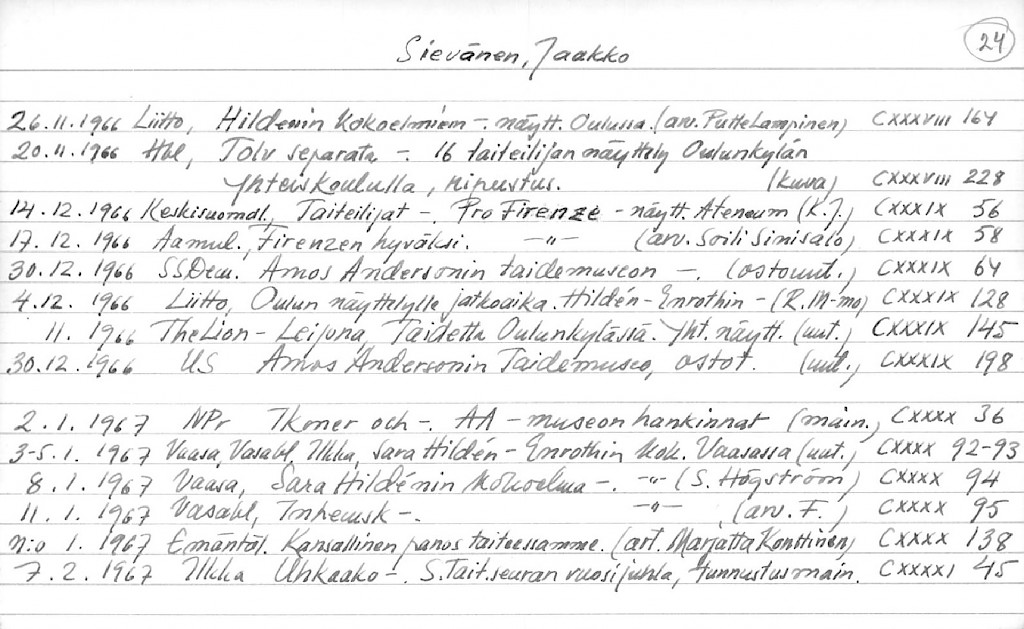 24
Sievänen, Jaakko
26.11.1966 Liitto, Hildénin kokoelmiem -. näytt. Oulussa. (arv. Putte Lampinen) CXXXVIII 164
20.11.1966 Hbl, Tolv separata -. 16 taiteilijan näyttely Oulunkylän
Yhteiskoululla, ripustus. (kuva) CXXXVIII 228
14.12.1966 Keskisuomal., Taiteilijat -. Pro Firenze - näytt. Ateneum (K.J.) CXXXIX 56
17.12.1966 Aamul., Firenzen hyväksi. -"- (arv. Soili Sinisalo) CXXXIX 58
30.12.1966 SSDem. Amos Andersonin taidemuseon -. (ostouut.) CXXXIX 64
4.12.1966 Liitto, Oulun näyttelylle jatkoaika. Hildén-Enrothin - (R.M-mo) CXXXIX 128
11.1966 The Lion - Leijona, Taidetta Oulunkylässä. Yht. näytt. (uut.) CXXXIX 145
30.12.1966 US Amos Andersonin Taidemuseo, ostot. (uut.) CXXXIX 198
2.1.1967 NPr Ikoner och -. AA - museon hankinnat (main.) CXXXX 36
3-5.1.1967 Vaasa, Vasabl, Ilkka, Sara Hildén - Enrothin kok. Vaasassa (uut.) CXXXX 92-93
8.1.1967 Vaasa, Sara Hildénin kokoelma -. -"- (S. Högström) CXXXX 94
11.1.1967 Vasabl, Inhemsk -. -"- (arv. F.) CXXXX 95
n:o 1.1967 Emäntäl. Kansallinen panos taiteessamme. (art. Marjatta Konttinen) CXXXX 138
7.2.1967 Ilkka Uhkaako -. S.Tait.seuran vuosijuhla, tunnustusmain. CXXXXI 45